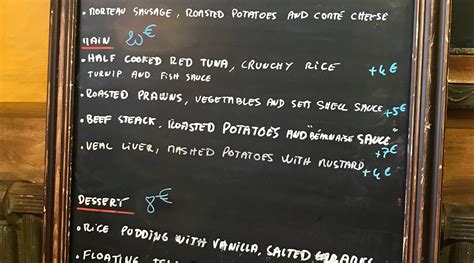 • MORTEAU SAUSAGE, ROASTED POTATOES AND COMTÉ CHEESE
MAIN 20€
• HALF COOKED RED TUNA, CRUNCHY RICE
TURNIP AND FISH SAUCE +4€
• ROASTED PRAWNS, VEGETABLES AND SEA SHELL SAUCE +5€
• BEEF STEACK, ROASTED POTATOES AND "BÉARNAISE SAUCE"
+7€
• VEAL LIVER, MASHED POTATOES WITH MUSTARD
+4€
DESSERT 8€
• RICE PUDDING WITH VANILLA, SALTED
• FLOATING